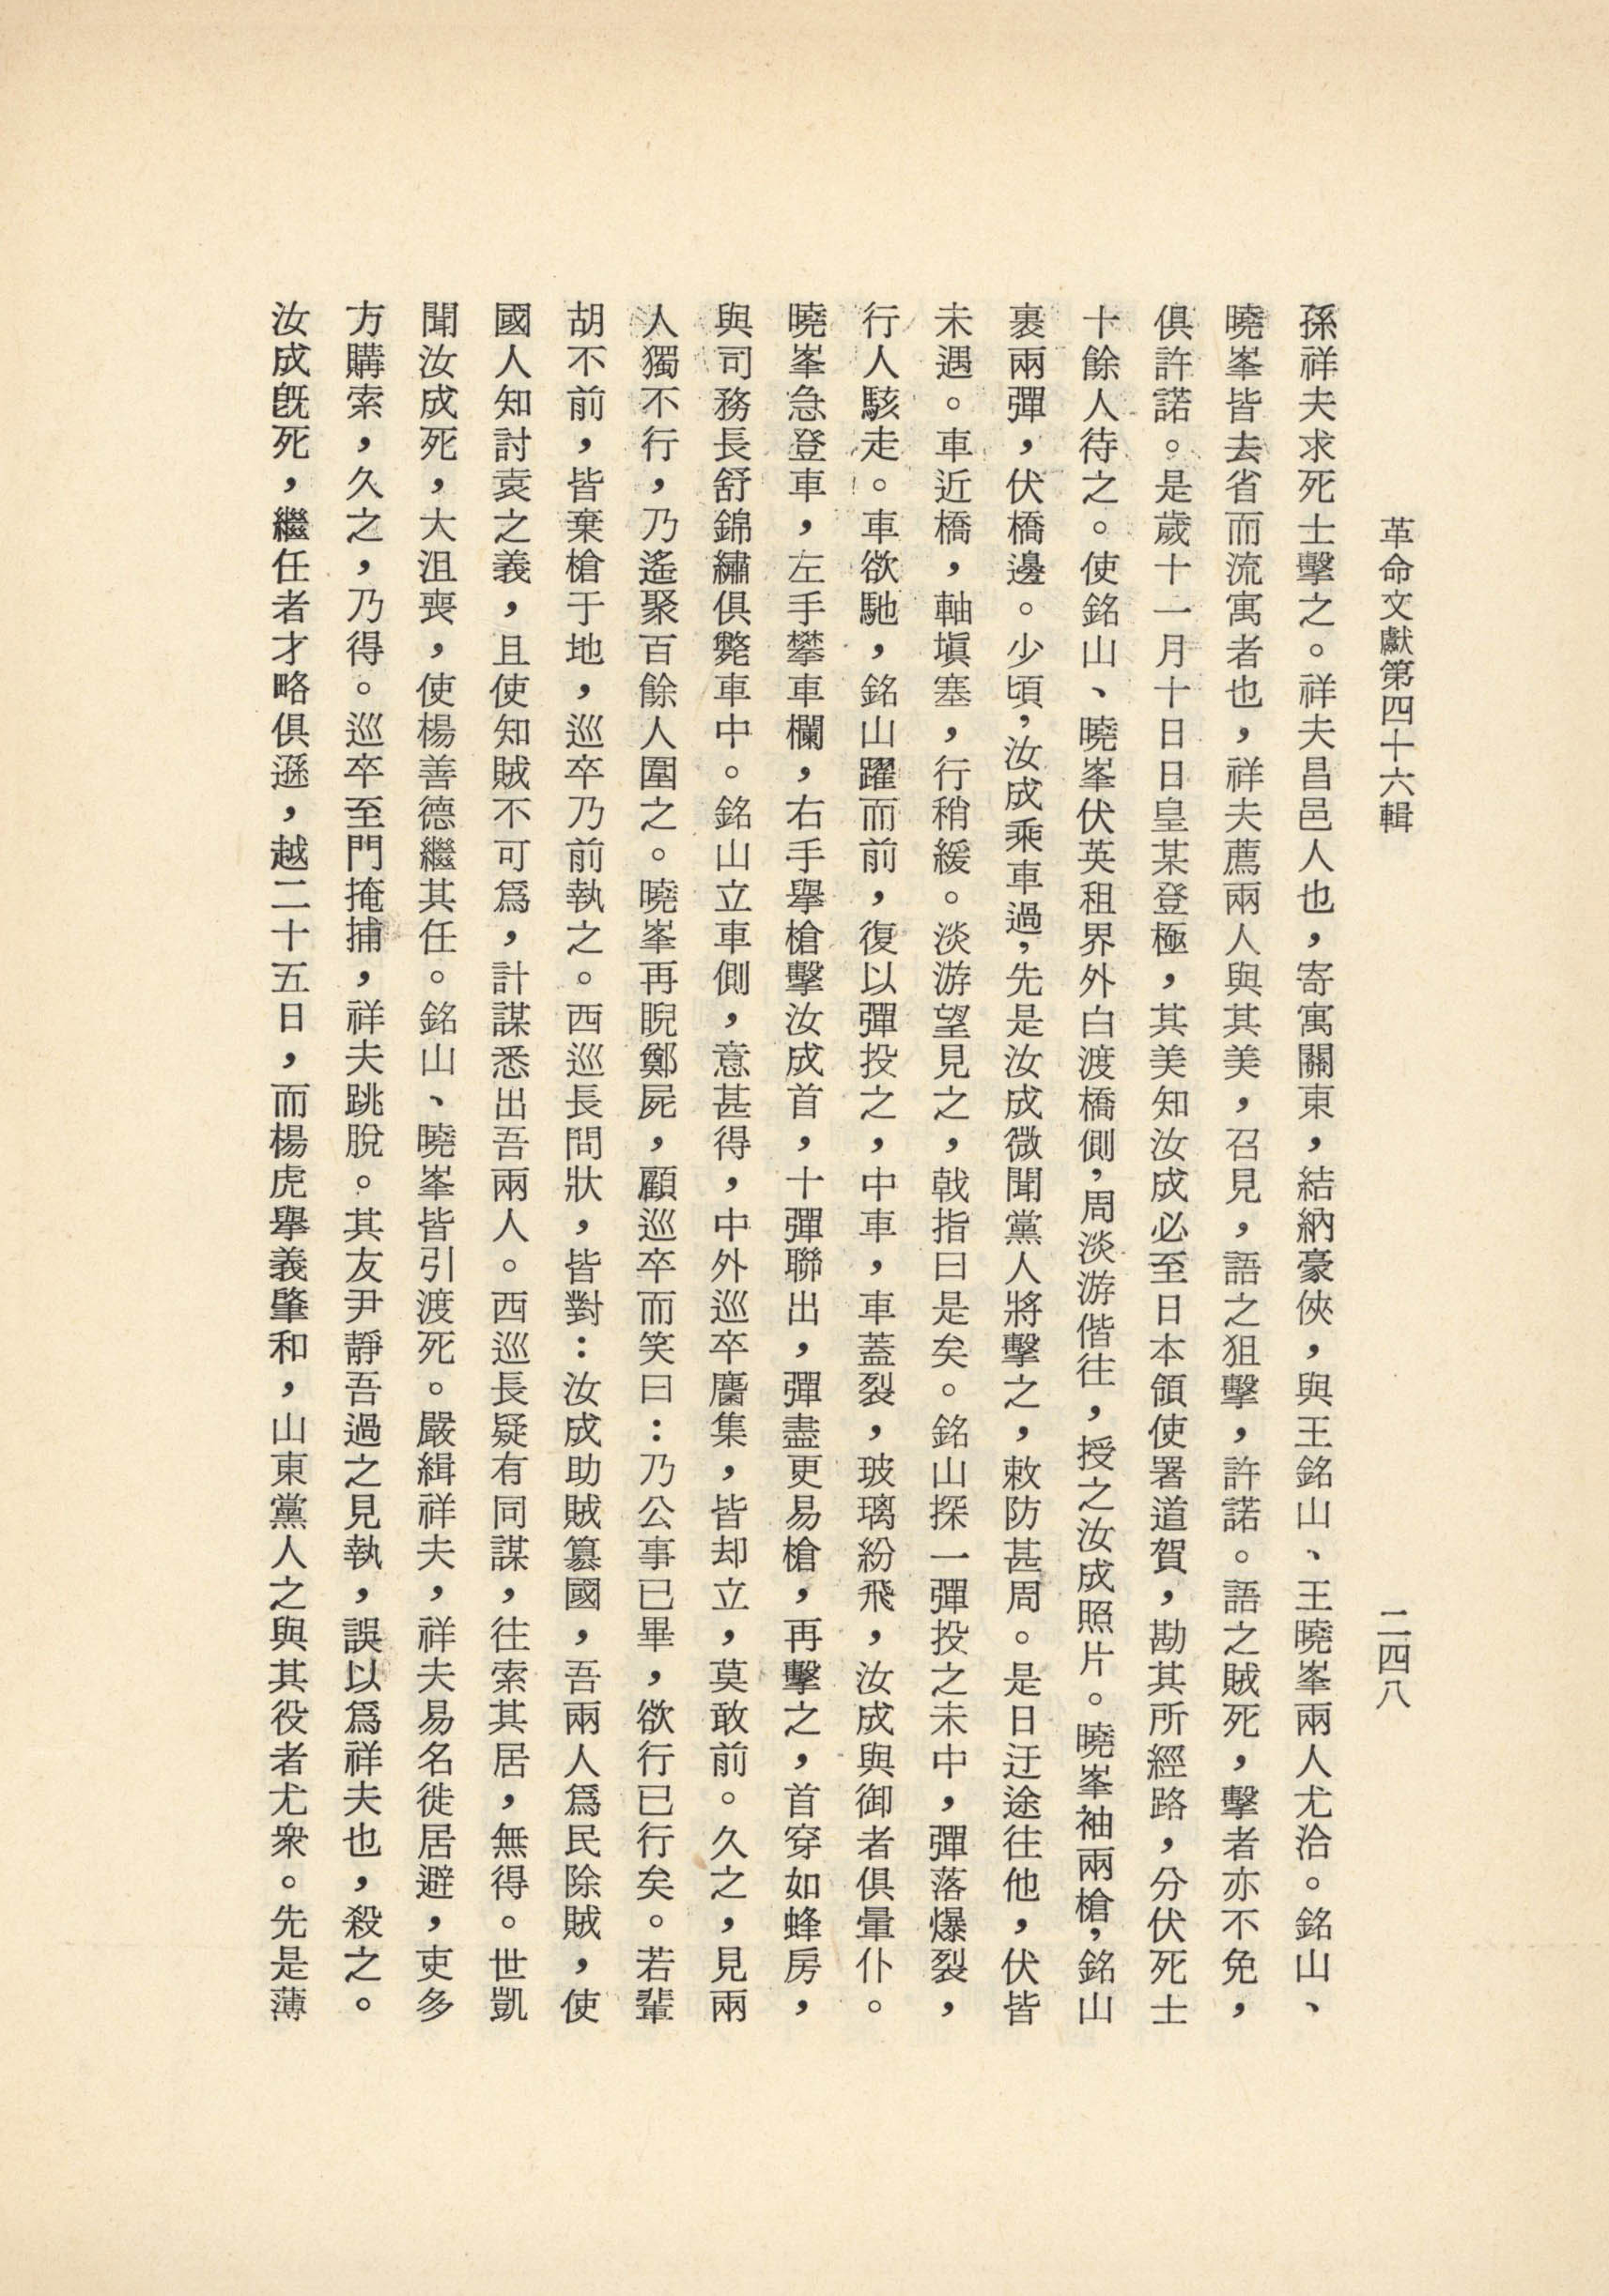 革命文獻第四十六輯
二四八
孫祥夫求死士擊之。祥夫昌邑人也，寄寓關東，結納豪俠，與王銘山、王曉峯兩人尤洽。銘山、
曉峯皆去省而流寓者也，祥夫薦兩人與其美，召見，語之狙擊，許諾。語之賊死，擊者亦不免，
俱許諾。是歲十一月十日日皇某登極，其美知汝成必至日本領使署道賀，勘其所經路，分伏死士
十餘人待之。使銘山、曉峯伏英租界外白渡橋側，周淡游偕往，授之汝成照片。曉峯袖兩槍，銘山
裹兩彈，伏橋邊。少頃，汝成乘車過，先是汝成微聞黨人將擊之，敕防甚周。是日迂途往他，伏皆
未遇。車近橋，軸塡塞，行稍緩。淡游望見之，戟指曰是矣。銘山探一彈投之未中，彈落爆裂，
行人駭走。車欲馳，銘山躍而前，復以彈投之，中車，車蓋裂，玻璃紛飛，汝成與御者俱暈仆。
曉峯急登車，左手攀車欄，右手擧槍擊汝成首，十彈聯出，彈盡更易槍，再擊之，首穿如蜂房，
與司務長舒錦繡俱斃車中。銘山立車側，意甚得，中外巡卒麕集，皆却立，莫敢前。久之，見兩
人獨不行，乃遙聚百餘人圍之。曉峯再睨鄭屍，顧巡卒而笑曰：乃公事已畢，欲行已行矣。若輩
胡不前，皆棄槍于地，巡卒乃前執之。西巡長問狀，皆對：汝成助賊簒國，吾兩人爲民除賊，使
國人知討袁之義，且使知賊不可爲，計謀悉出吾兩人。西巡長疑有同謀，往索其居，無得。世凱
聞汝成死，大沮喪，使楊善德繼其任。銘山、曉峯皆引渡死。嚴緝祥夫，祥夫易名徙居避，吏多
方購索，久之，乃得。巡卒至門掩捕，祥夫跳脫。其友尹靜吾過之見執，誤以爲祥夫也，殺之。
汝成旣死，繼任者才略俱遜，越二十五日，而楊虎擧義肇和，山東黨人之與其役者尤衆。先是薄